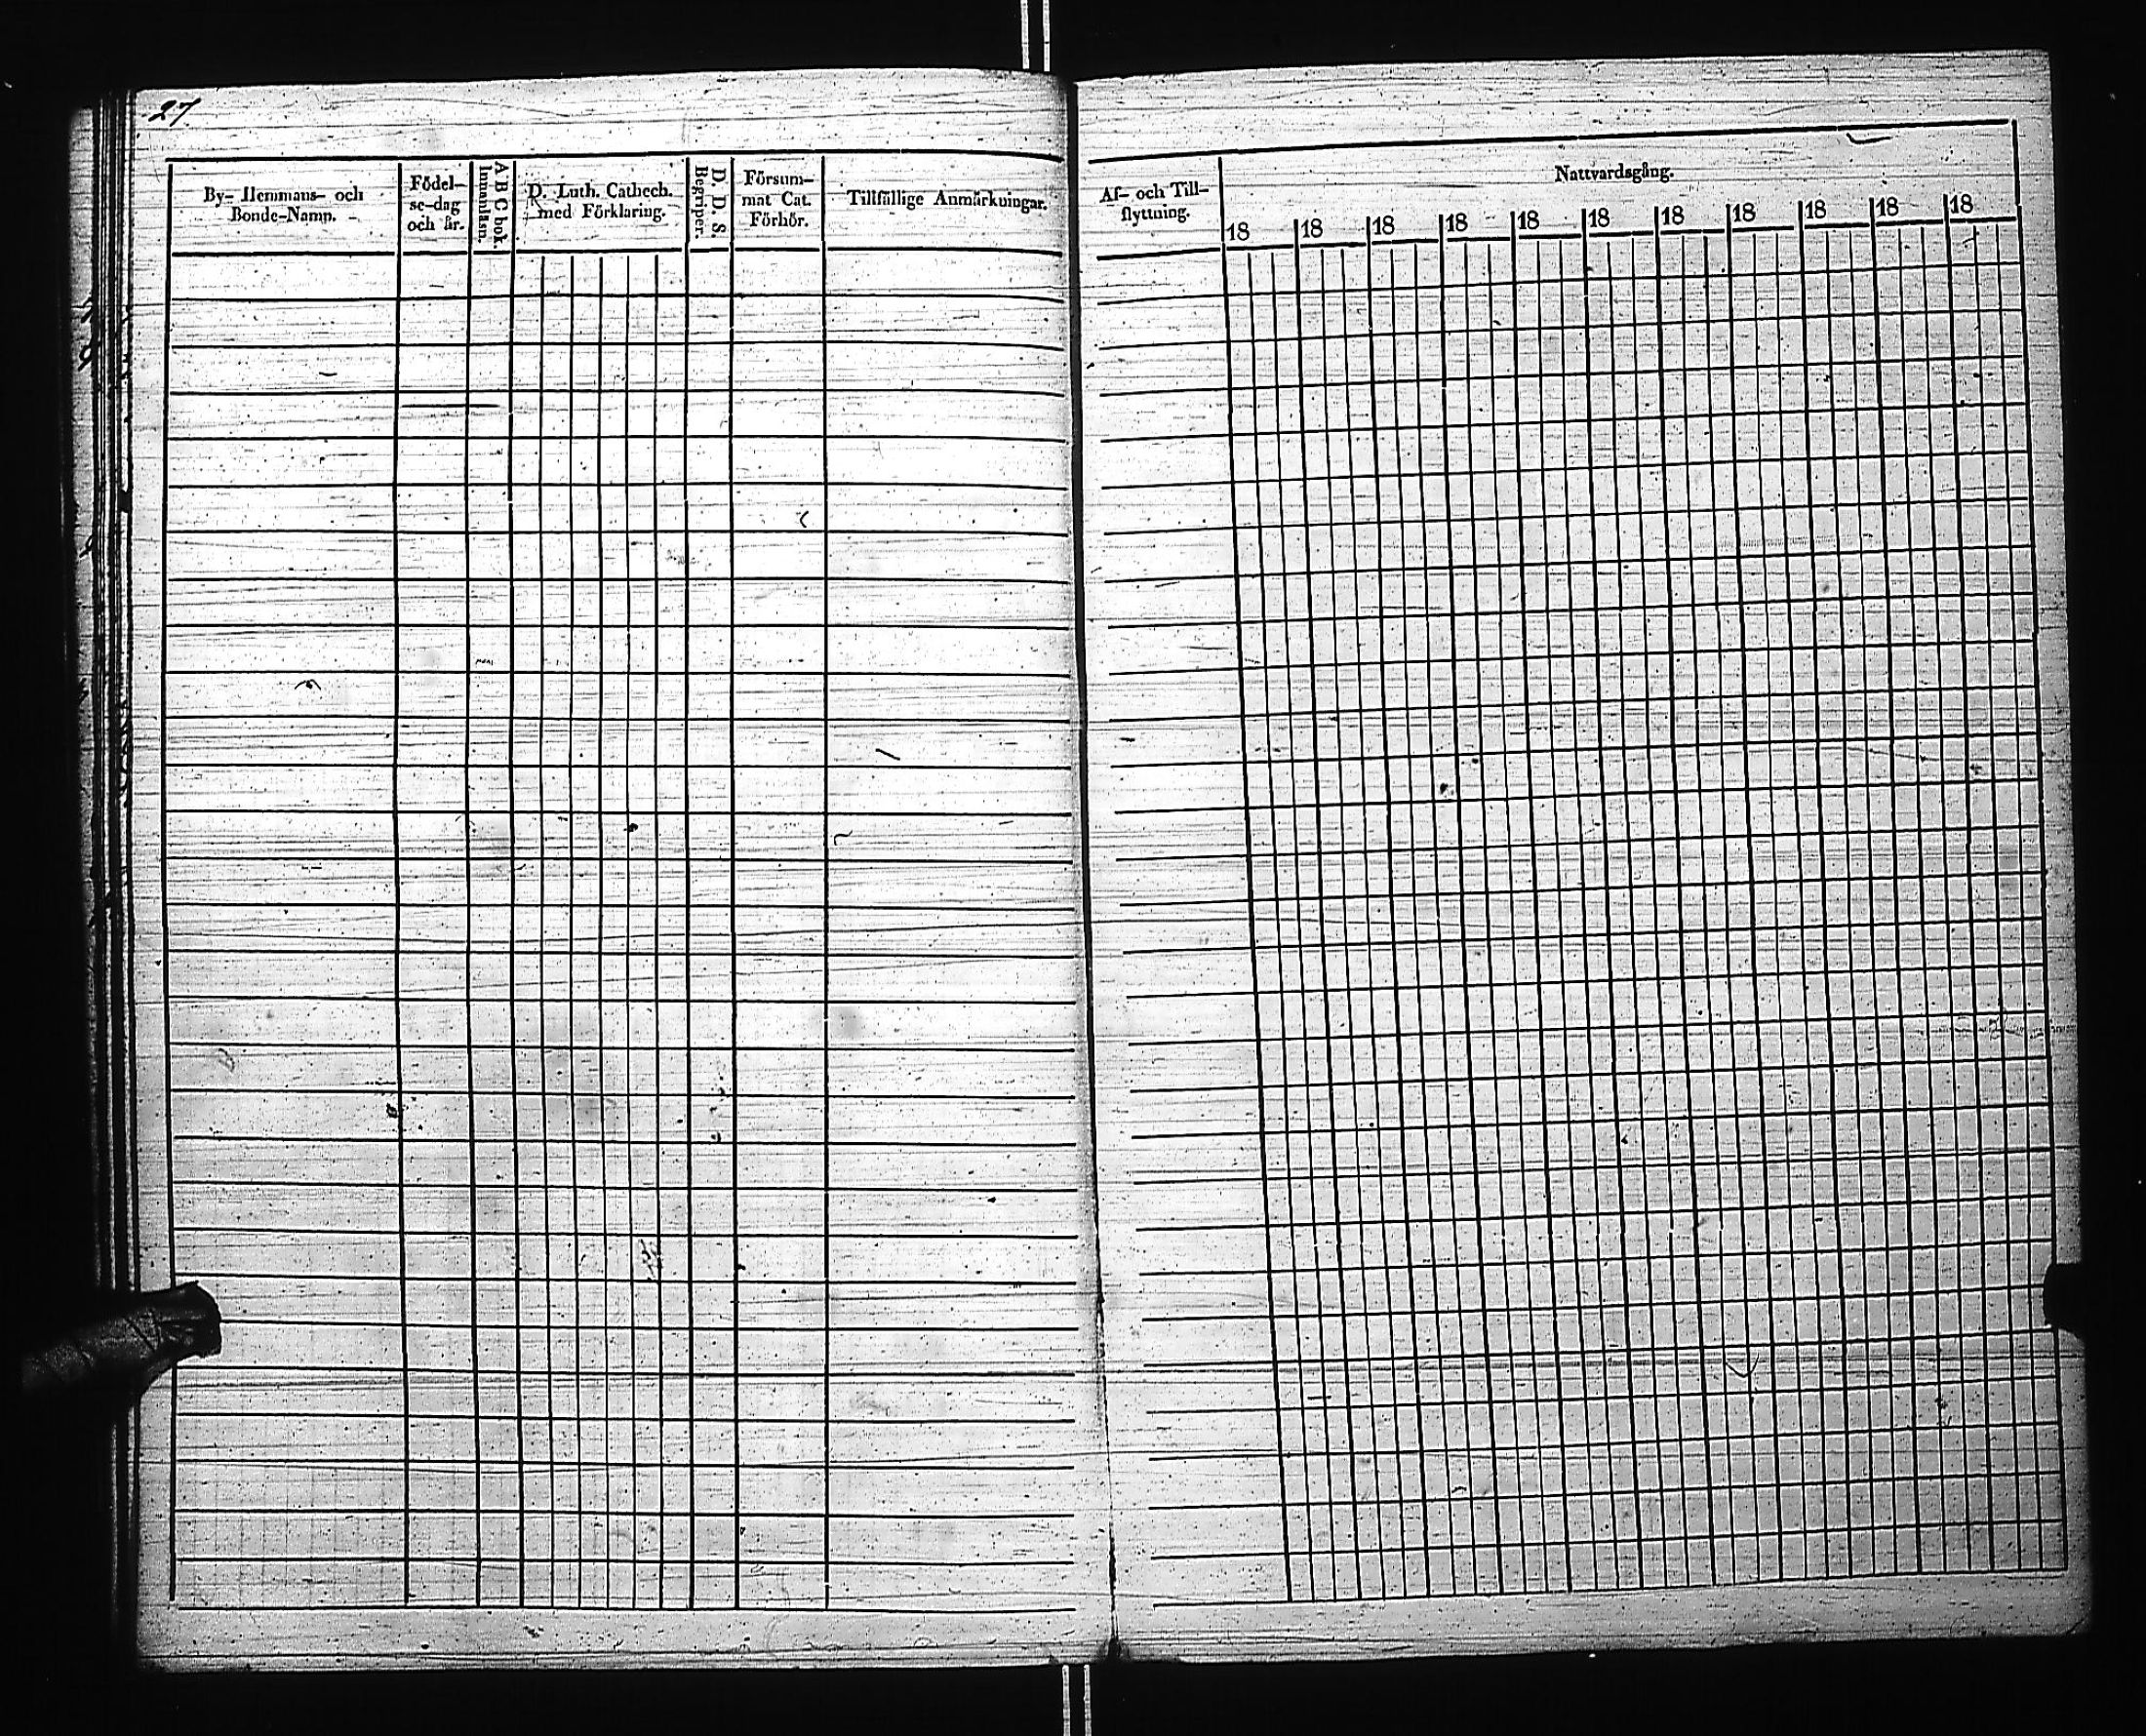 27
By- Hemmans- och
Bonde-Namn.
Födel-
se-dag
och år.
A B C bok
Innanläsn.
D. Luth. Cathech.
med Förklaring.
D. D. S.
Begriper.
Försum-
mat Cat.
Förhör.
Tillfällige Anmärkningar.
Af- och Till-
flyttning.
Nattvardsgång.
18 18 18 18 18 18 18 18 18 18 18